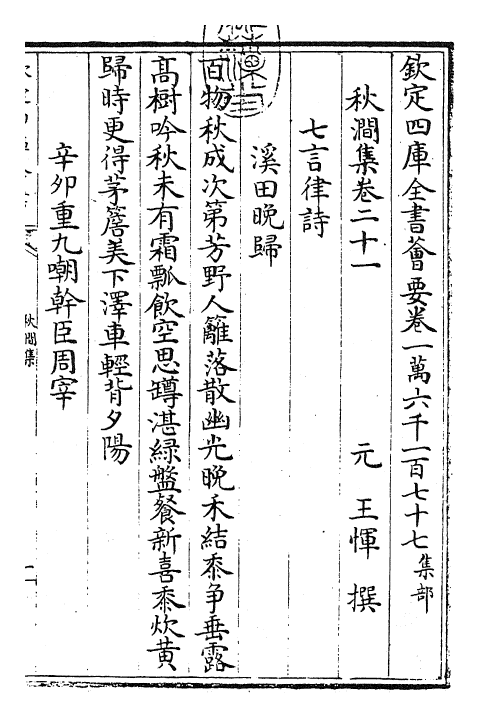 欽定四庫全書薈要卷一萬六千一百七十七集部
秋澗集卷二十一　元　王惲　撰
七言律詩
溪田晚歸
百物秋成次第芳野人籬落散幽光晚禾結黍爭垂露
髙樹吟秋未有霜瓢飲空思罇湛緑盤餐新喜黍炊黄
歸時更得茅簷美下澤車輕背夕陽
辛卯重九嘲幹臣周宰
秋澗集